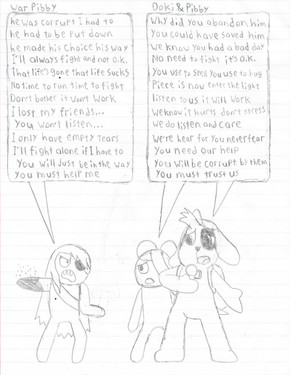 War Pibby
he was corrupt I had to
he had to be Put down
he made his choice his way
I'll always fight and not O.K.
That life's gone that life sucks
No time to run time to fight
Don't bother it won't work
I lost my friends...
You won't listen...
I only have empty tears
I'll fight alone if I have to
You will Just be in the way
you must help me
Ooki & Pibby
Why did you abandon him
You could have saved him
We know you had a bad day
No need to fight it's O.K.
you use to you use to hug
Piece is now enter the light
listen to us it will work
We know it hurts don't stress
We do listen and care
We're hear for you never fear
You need our help
You will be corrupt by them
You must trust us